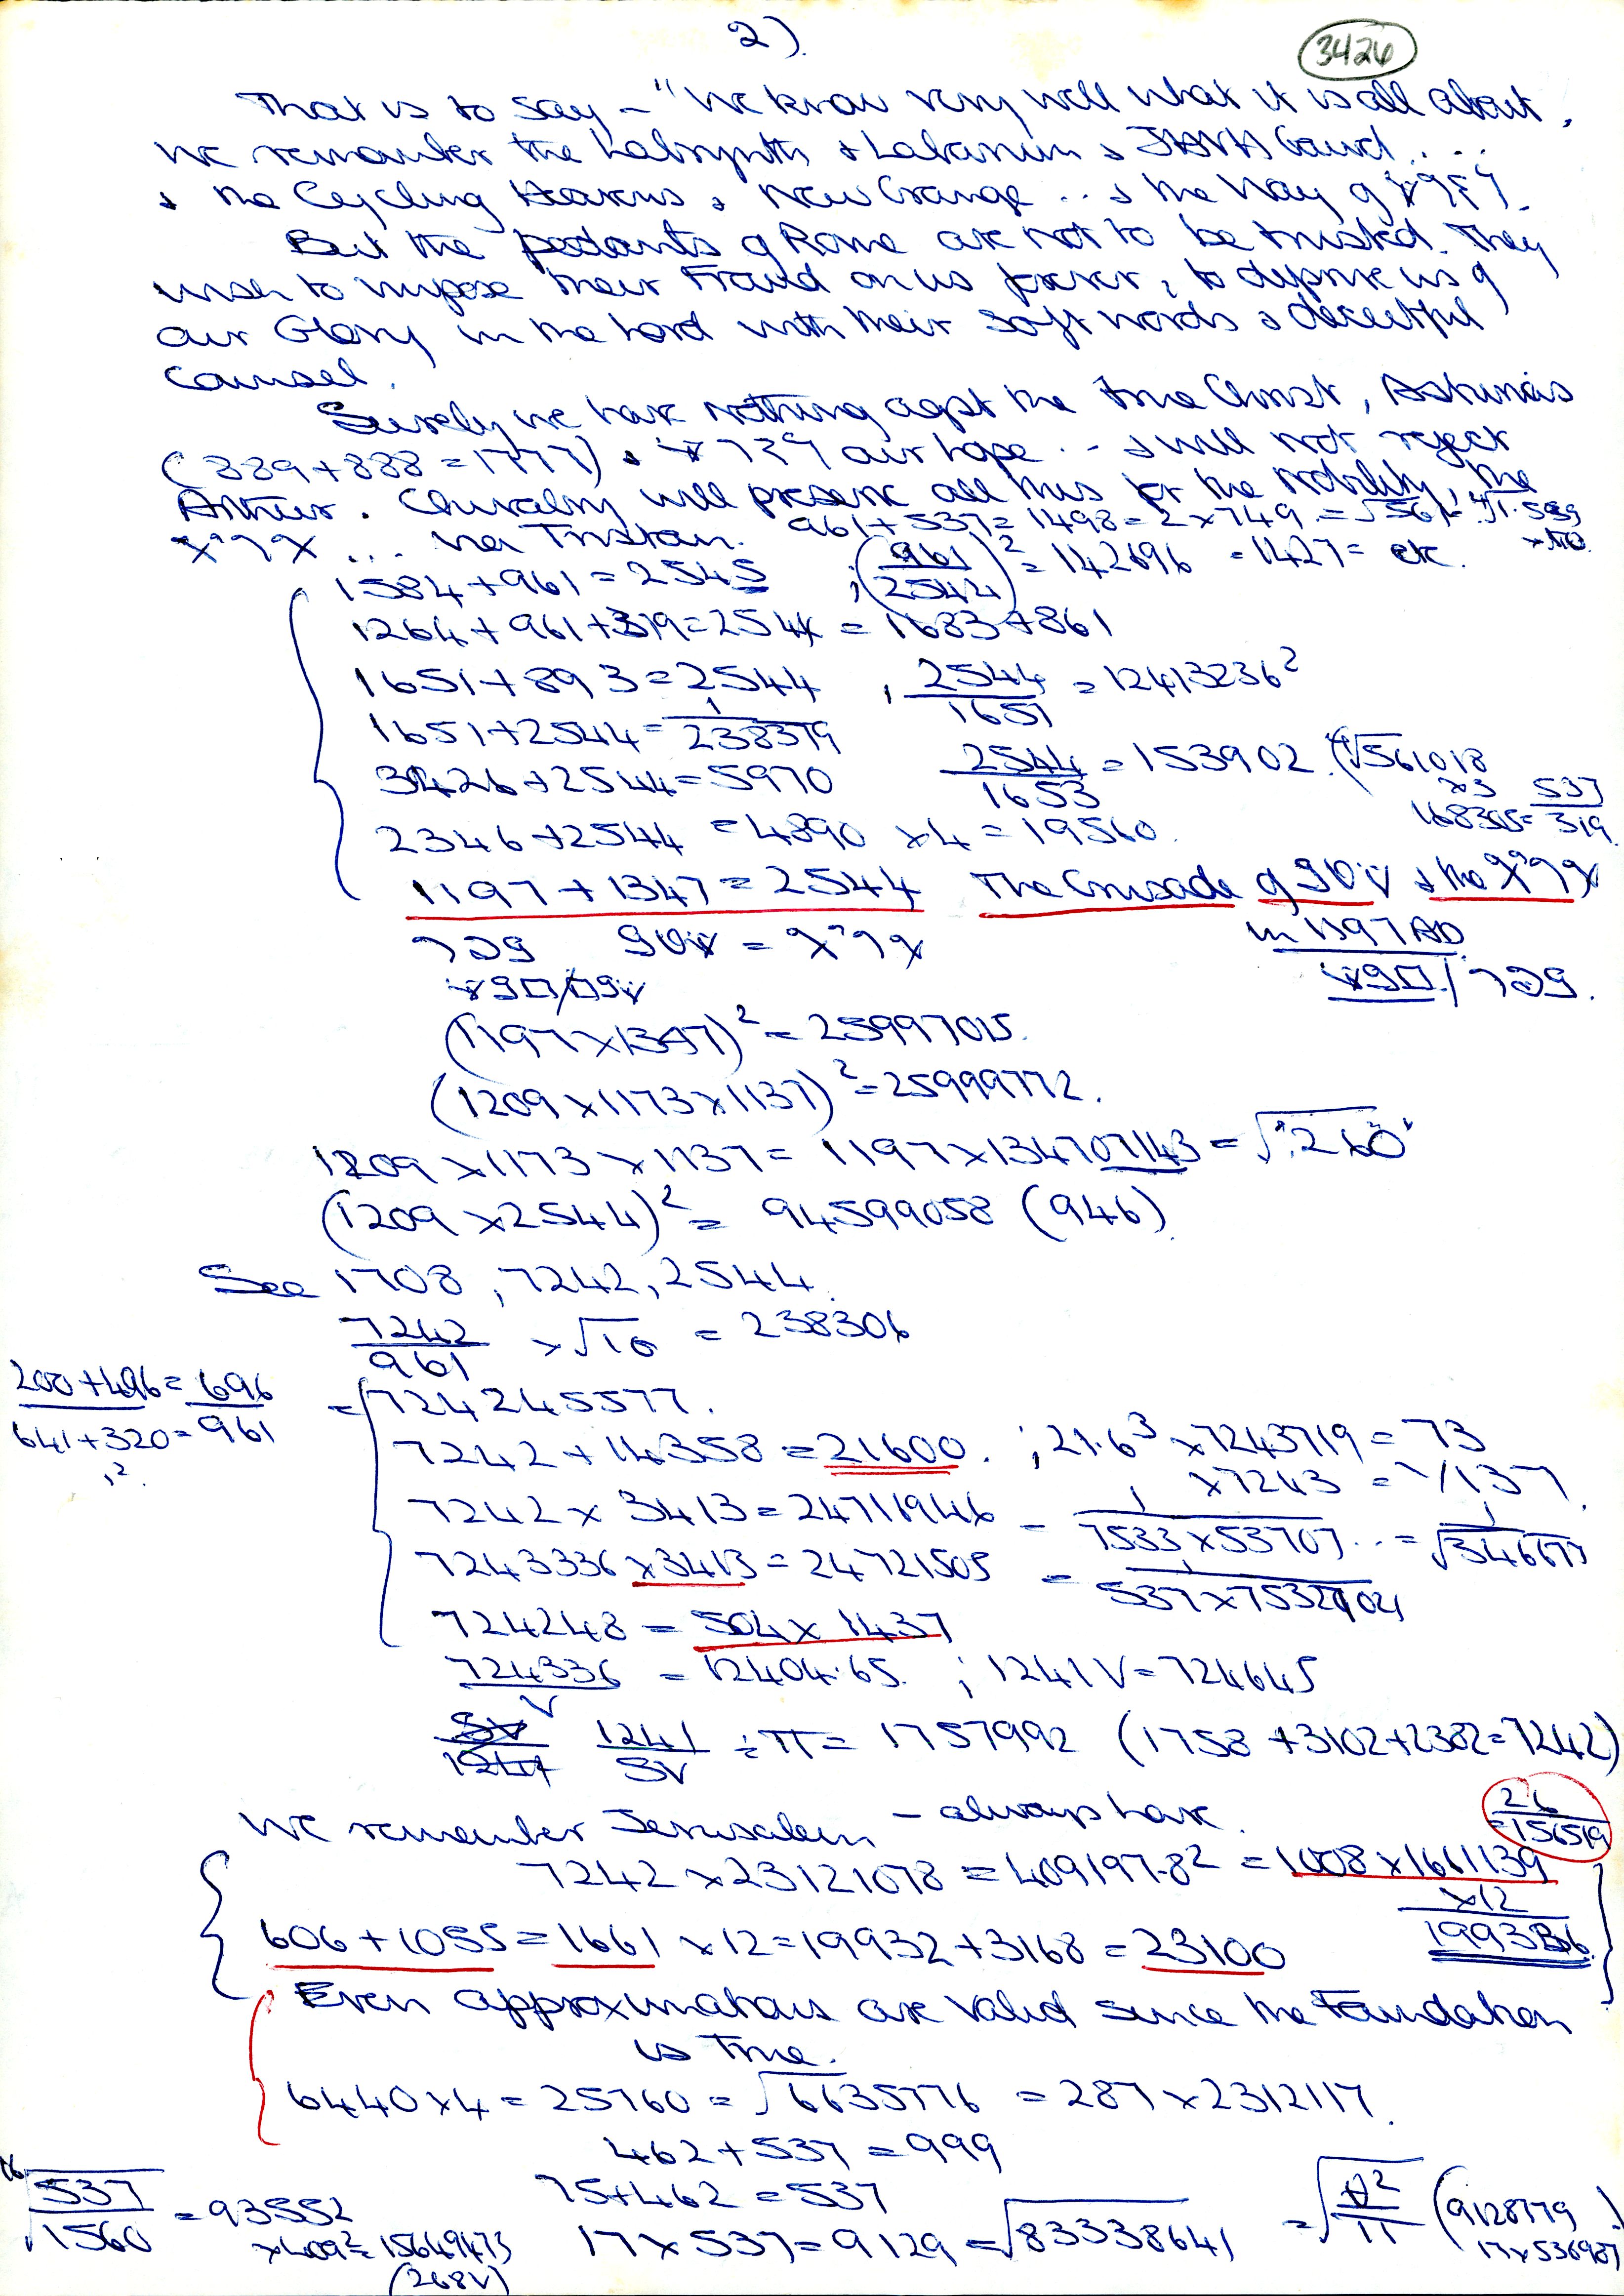 2).
3426
That is to say – "We know very well what it is all about,
we remember the Labrynth & Labarum & JAVA Gaurd ....
& the Cycling Heavens, New Grange ... & the Way of
But the pedants of Rome are not to be trusted. They
wish to impose their Fraud on us forever, to deprive us of
our Glory in the Lord with their soft words & deceitful
Counsel.
Surely we have nothing agst the true Christ,
(889+888=1777) & our hope .. & will not reject
Arthur. Chivalry will preserve all this for the Nobility, the
... via Tristan. 961+537=1498=2×749.=√561=
1584+961=2545 ; (961/2544)² = 142696 = 1427= etc.
1264+961+319=2544 = 1683+861
1651+893=2544 , 2544/1651 = 12413236²
1651+2544= 1/238379
3426+2544=5970 2544/1653 = 153902. (∜561018
×3 537
168305= 319
2346+2544 =4890 ×4=19560.
1197+1347=2544 The Crusade of & the
in 1197AD
(1197×1347)²=25997015.
(1209×1173×1137)²=25999772.
1209×1173×1137= 1197×134707143=√.260
(1209×2544)²= 94599058 (946)
See 1708, 7242, 2544.
7242/961 ×√10 = 238306
200+496=696
641+320=961
=√724245577.
7242+14358=21600. ; 21.6³×7243719=73
×7243 = V/137.
7242×3413=24716946 = 1/7533×53707 .. = 1/√346673
7243336×3413=24721505 = 1/537×7532904
724248=504×1437
724336/V =12404.65. ; 1241V=724645
1241/3V ÷π= 1757992 (1758+3102+2382=7242)
We remember Jerusalem – always have.
26
=156519
7242×23121078=409197.8²=1008×1661139
×12
199336.
606+1055=1661×12=19932+3168=23100
Even approximations are valid since the Foundation
is True.
6440×4=25760=√6635776 =287×2312117.
462+537=999
75+462=537
√537/1560 =93552
×409²=15649473
(268V)
17×537=9129=√83338641 =√θ²/11 (9128779
17×536987)